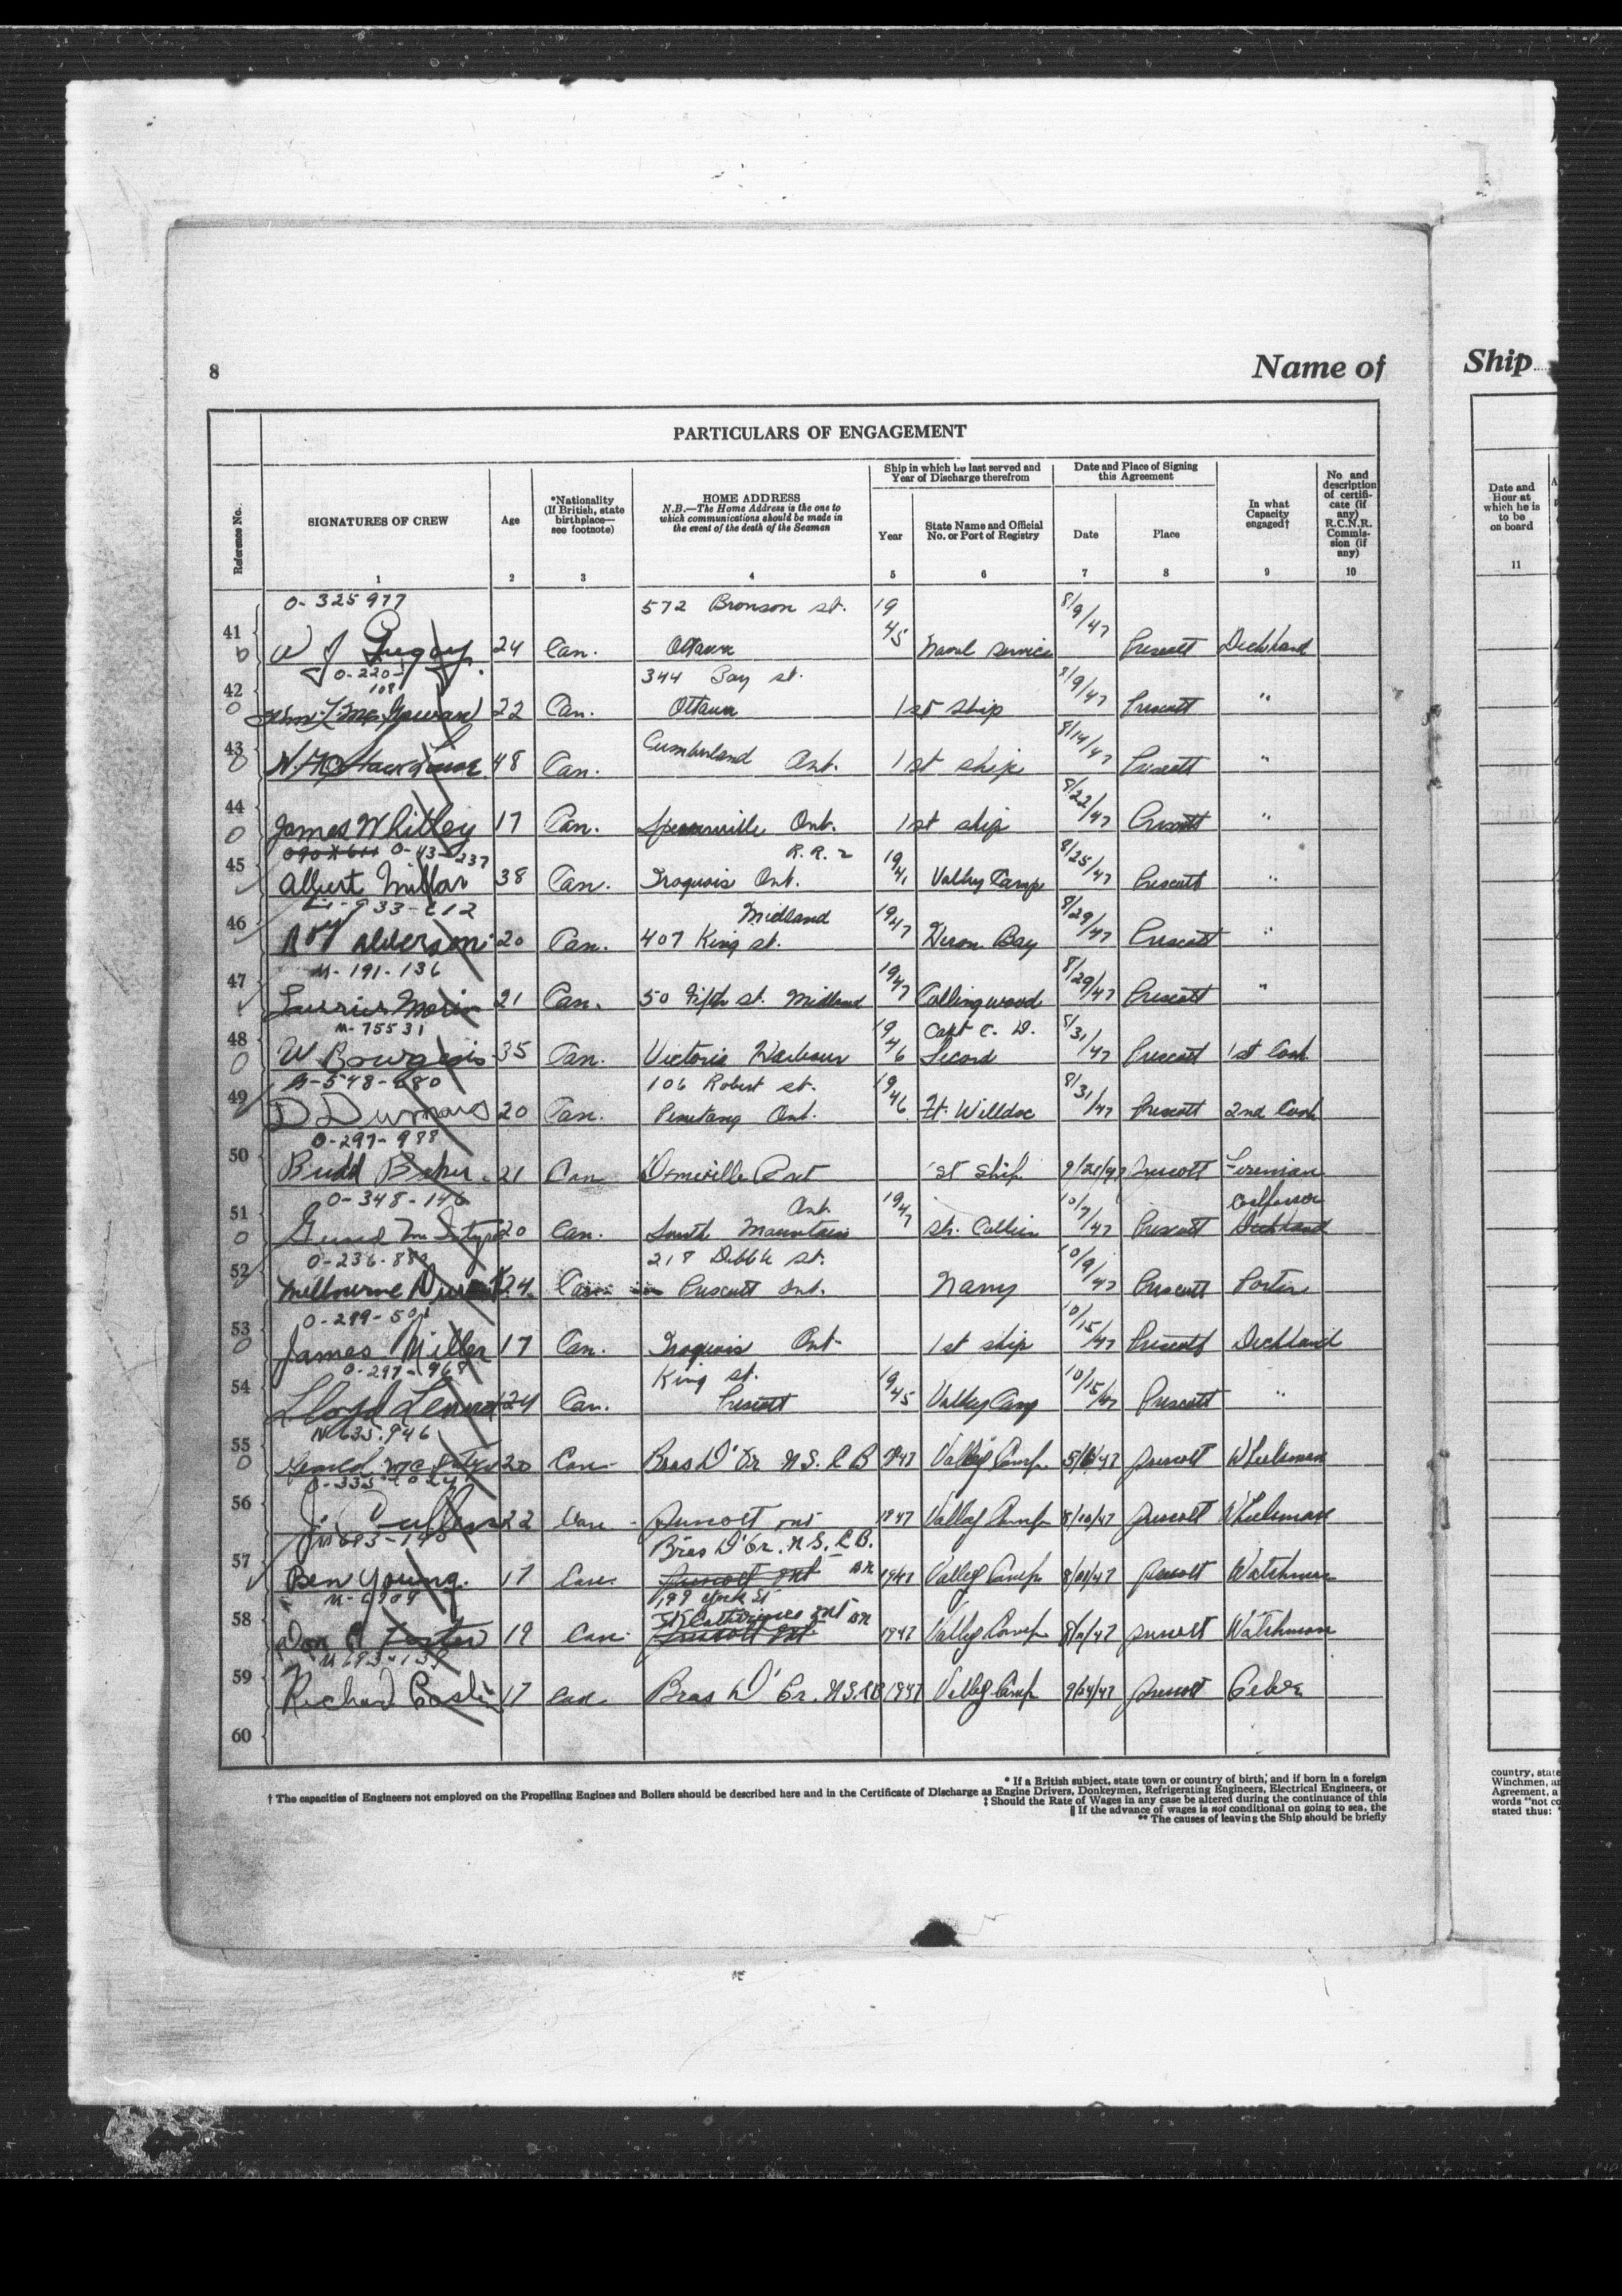 8
Name of
Ship
PARTICULARS OF ENGAGEMENT
Reference No.
SIGNATURES OF CREW
Age
*Nationality (If British, state birthplace— see footnote)
HOME ADDRESS
N.B.—The Home Address is the one to which communications should be made in the event of the death of the Seaman
Ship in which he last served and Year of Discharge therefrom
Year
State Name and Official No. or Port of Registry
Date and Place of Signing this Agreement
Date
Place
In what Capacity engaged†
No and description of certificate (if any) R.C.N.R. Commission (if any)
Date and Hour at which he is to be on board
1 2 3 4 5 6 7 8 9 10 11
O-325977 572 Bronson st. 19 8/9/47
41 W J 24 Can. Ottawa 45 Naval Service Prescott Deckhand
O-220- 108 344 Bay st. 8/9/47
42 22 Can. Ottawa 1st ship Prescott "
43 48 Can. Cumberland Ont. 1st ship 8/14/47 Prescott "
44 James Whitley 17 Can. Spencerville Ont. 1st ship 8/22/47 Prescott "
O-43-237 R.R. 2
45 Albert Millar 38 Can. Iroquois Ont. 1941 Valley Camp 8/25/47 Prescott "
Midland
46 Roy Alderson 20 Can. 407 King st. 1947 Heron Bay 8/29/47 Prescott "
M-191-136
47 Morin 21 Can. 50 Fifth st. Midland 1947 Collingwood 8/29/47 Prescott "
M-75531 Capt C. D.
48 W Bourgeois 35 Can. Victoria Harbour 1946 Secord 8/31/47 Prescott 1st Cook
-548-680 106 Robert st.
49 D Dumais 20 Can. Penetang Ont. 1946 Ft. Willdoc 8/31/47 Prescott 2nd Cook
O-297-988
50 Budd Baker 21 Can Domville Ont 1st ship 9/21/47 Prescott Fireman
O-348-146 Ont. Coalpasser
51 20 Can. South Mountain 1947 Str. Collier 10/7/47 Prescott Deckhand
O-236-88 218 Dibble st.
52 Melbourne 24 Can Prescott Ont. Navy 10/9/47 Prescott Porter
O-299-50
53 James Miller 17 Can. Iroquois Ont 1st ship 10/15/47 Prescott Deckhand
O-297-968 King st.
54 Lloyd 24 Can. Prescott 1945 Valley Camp 10/15/47 Prescott "
N 635.946
55 Gerald 20 Can Bras D'Or N.S. C B 1947 Valley Camp Prescott Wheelsman
56 J. Cullen 22 Can Prescott ont 1947 Valley Camp 8/10/47 Prescott Wheelsman
Bras D'Or. N.S. C.B.
57 Ben Young. 17 Can. Prescott Ont 1947 Valley Camp Prescott Watchman
199 York St
St Catherines ont
58 Don Foster 19 Can. Prescott Ont 1947 Valley Camp Prescott Watchman
59 Richard 17 Can. Bras D'Or. N.S. CB 1947 Valley Camp 9/24/47 Prescott
60
* If a British subject, state town or country of birth, and if born in a foreign
† The capacities of Engineers not employed on the Propelling Engines and Boilers should be described here and in the Certificate of Discharge as Engine Drivers, Donkeymen, Refrigerating Engineers, Electrical Engineers, or
‡ Should the Rate of Wages in any case be altered during the continuance of this
‖ If the advance of wages is not conditional on going to sea, the
** The causes of leaving the Ship should be briefly
country, state
Winchmen, an
Agreement, a
words "not co
stated thus: